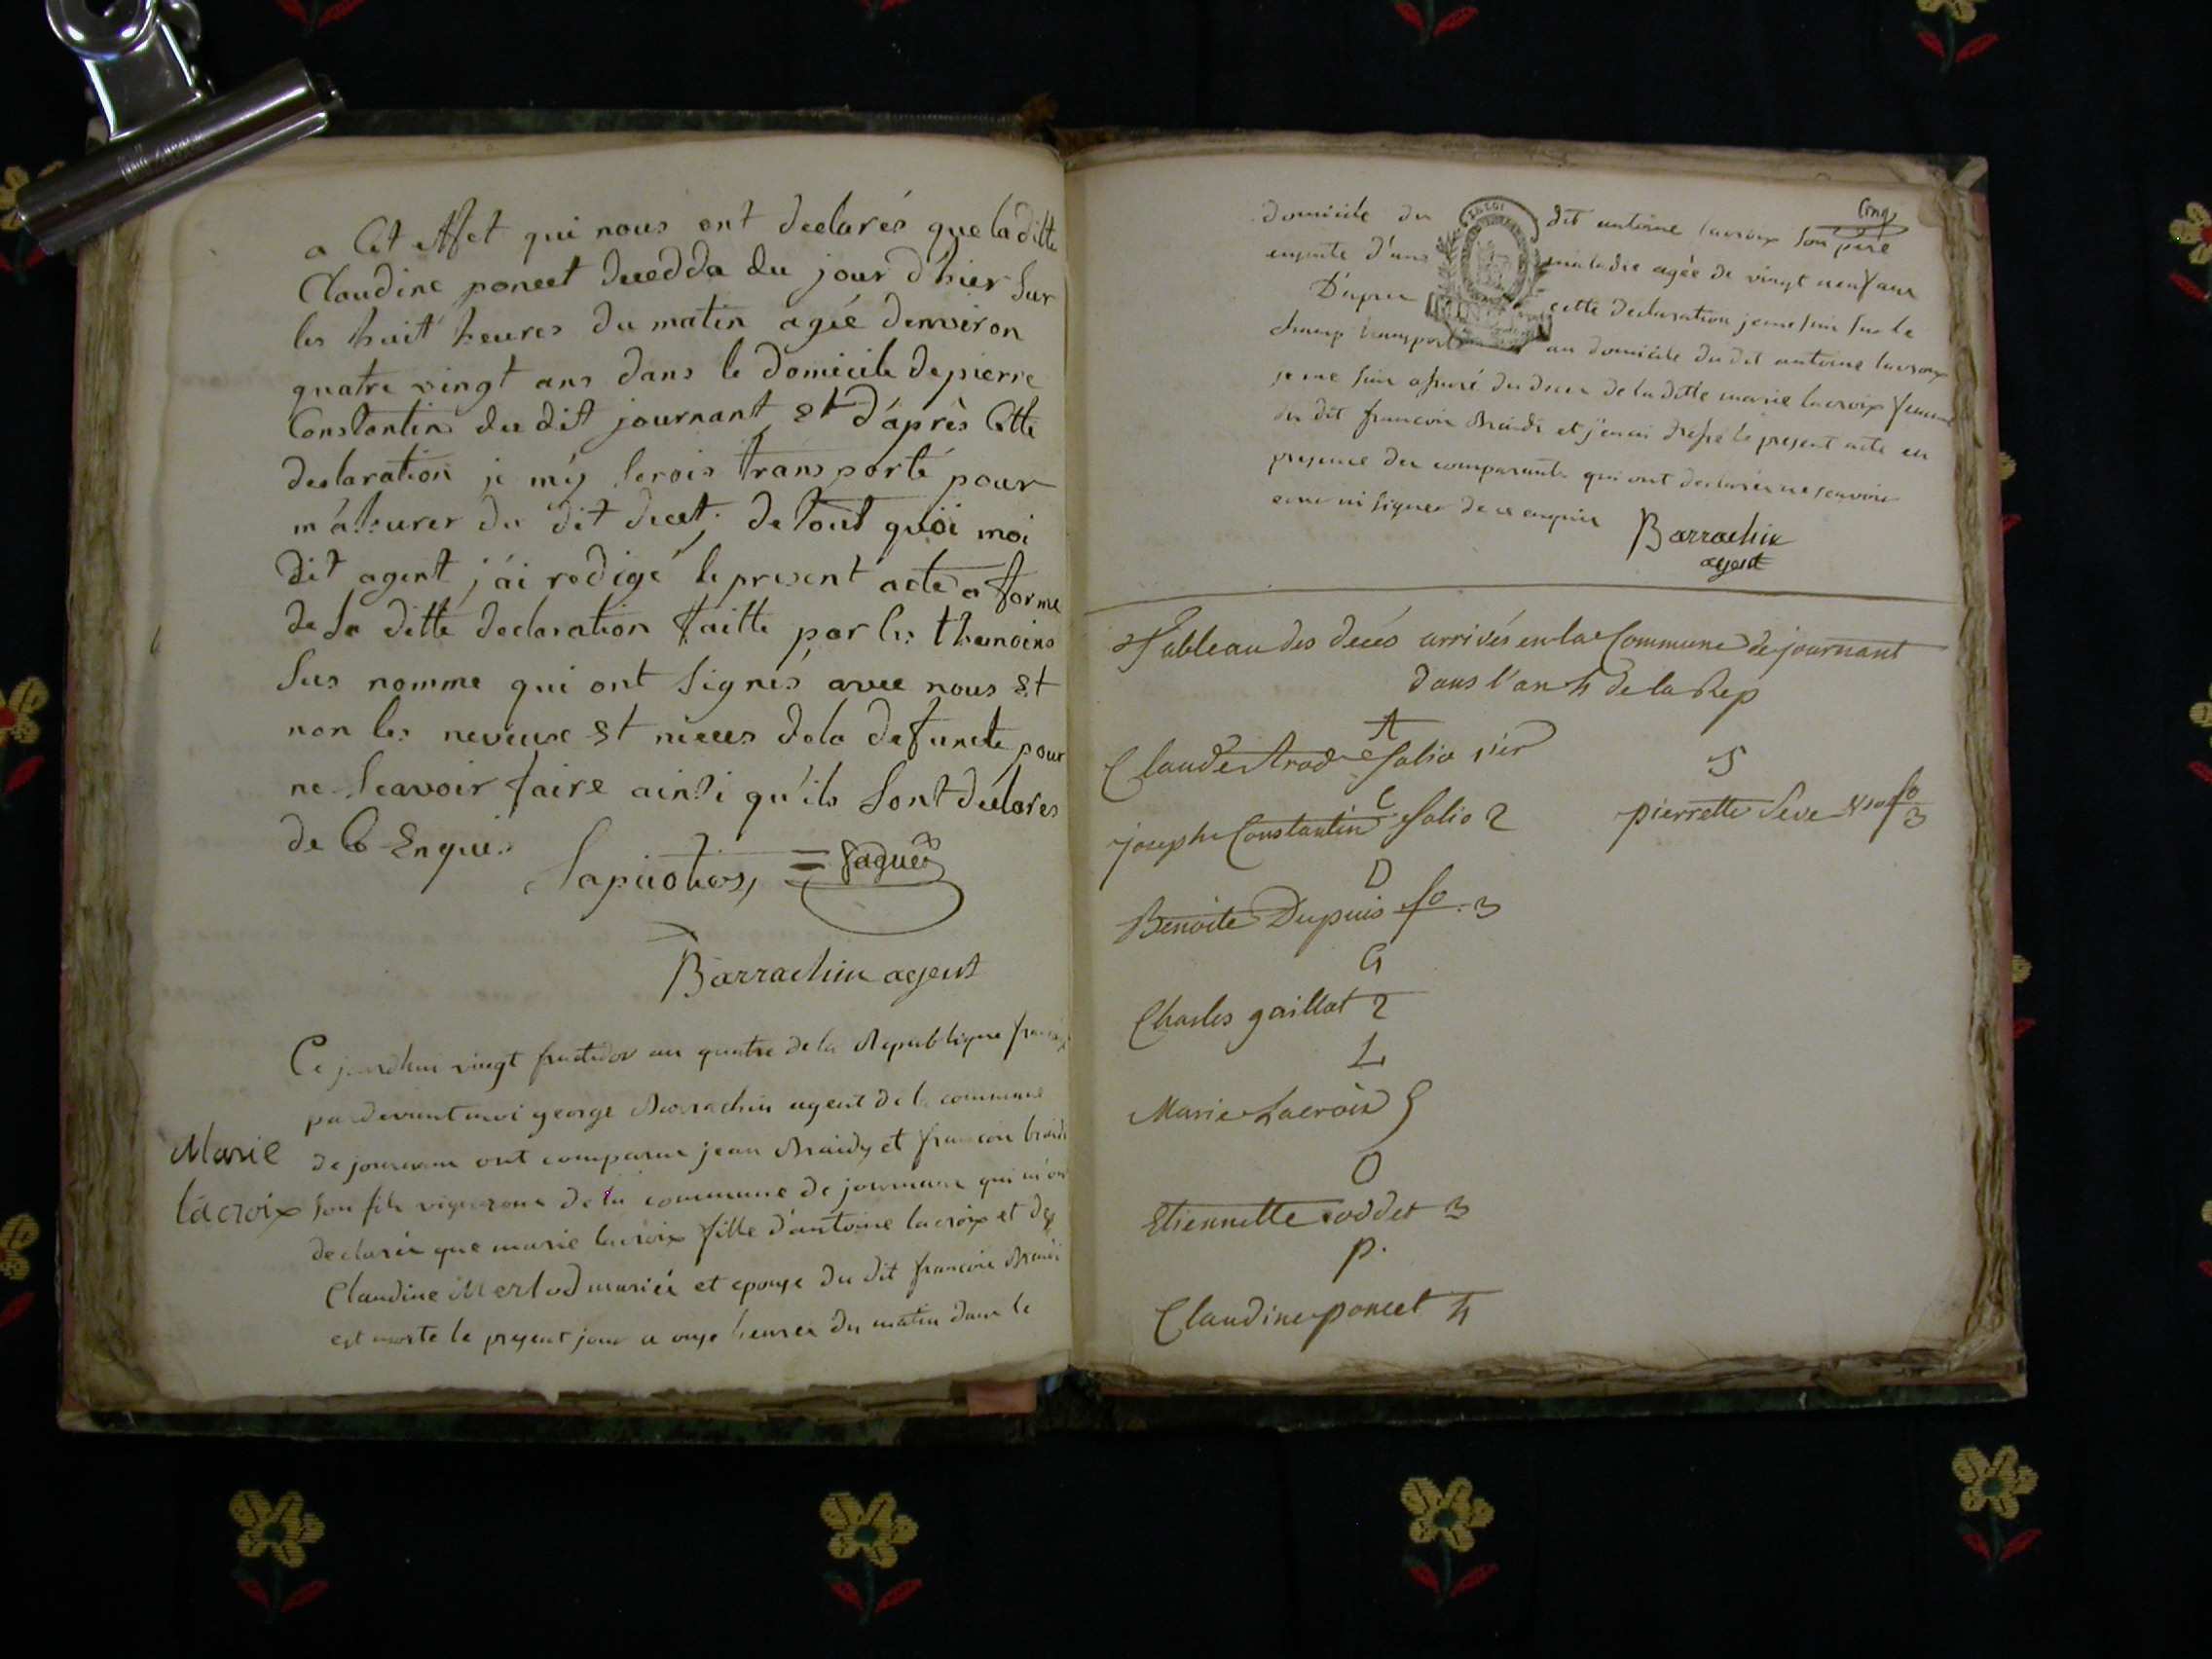 a Cet Effet qui nous ont declarés que la ditte
Claudine poncet decedda du jour d'hier sur
les huit heures du matin agée denviron
quatre vingt ans dans le domicile de pierre
Constantin du dit journant et d'après Cette
declaration je m'ÿ serois transporté pour
m'assurer du dit decet; de tout quoi moi
dit agent j'ai redigé le present acte a forme
de la ditte declaration faitte par les themoins
sus nomme qui ont signés avec nous et
non les neveux et nieces de la defuncte pour
ne scavoir faire ainsi qu'ils sont déclares
de Ce Enquis
Barrachin agent
Marie
lacroix
Ce jourdhui vingt fructidor an quatre de la Republique
pardevant moi george Barrachin agent de la commune
de journans ont comparu jean Braidy et francois
son fils vignerons de la commune de journans qui m'on
declarés que marie lacroix fille d'antoine lacroix et de
Claudine Merlod mariée et epouse du dit francois
est morte le present jour a onze heures du matin dans le
Cinq
domicile du dit antoine lacroix son père
enporte d'une maladie agée de vingt neuf ans
D'apres cette declaration je me suis sur le
champ transporté au domicile du dit antoine lacroix
je me suis assuré du deces de la ditte marie lacroix femme
du dit francois et j'en ai dressé le present acte en
presence des comparants qui ont declarés ne scavoir
ecrire ni signer de ce enquis
Barrachin
agent
Tableau des decés arrivés en la Commune de journant
dans l'an 4 de la Rep
A
Claude folio 1ier
C
joseph Constantin folio 2
D
Benoite Dupuis fo. 3
G
Charles gaillat 2
L
Marie Lacroix 5
O
Etiennette oddet 3
p.
Claudine poncet 4
S
pierrette Seve fo 3